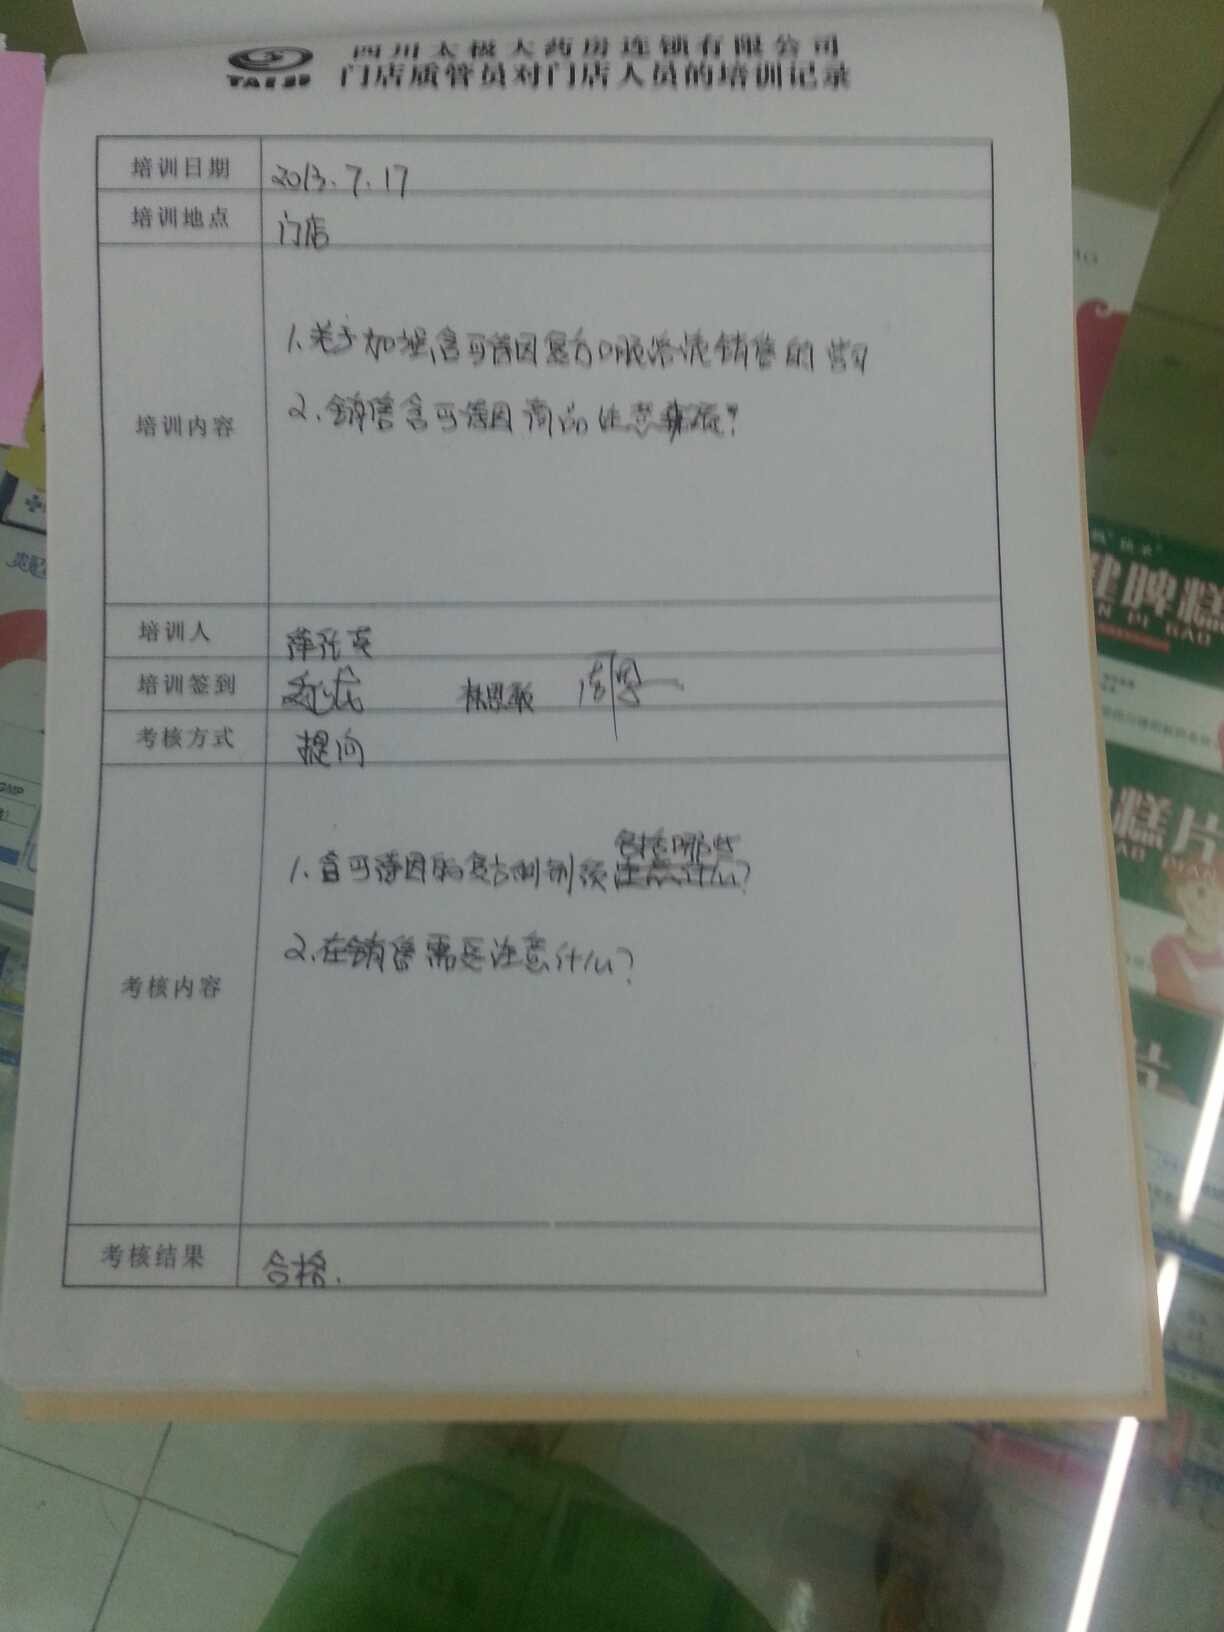 四川太极大药房连锁有限公司
TAIJI 门店质管员对门店人员的培训记录
培训日期 2013.7.17
培训地点 门店
培训内容
1.关于加强含可待因复方口服溶液销售的
2.销售含可待因商品注意事项?
培训人
培训签到
考核方式 提问
考核内容
包括哪些
1.含可待因的复方制剂须注意什么?
2.在销售需要注意什么?
考核结果 合格.
健脾糕
AN PI GAO
糕片
GAO PIAN
片
GMP